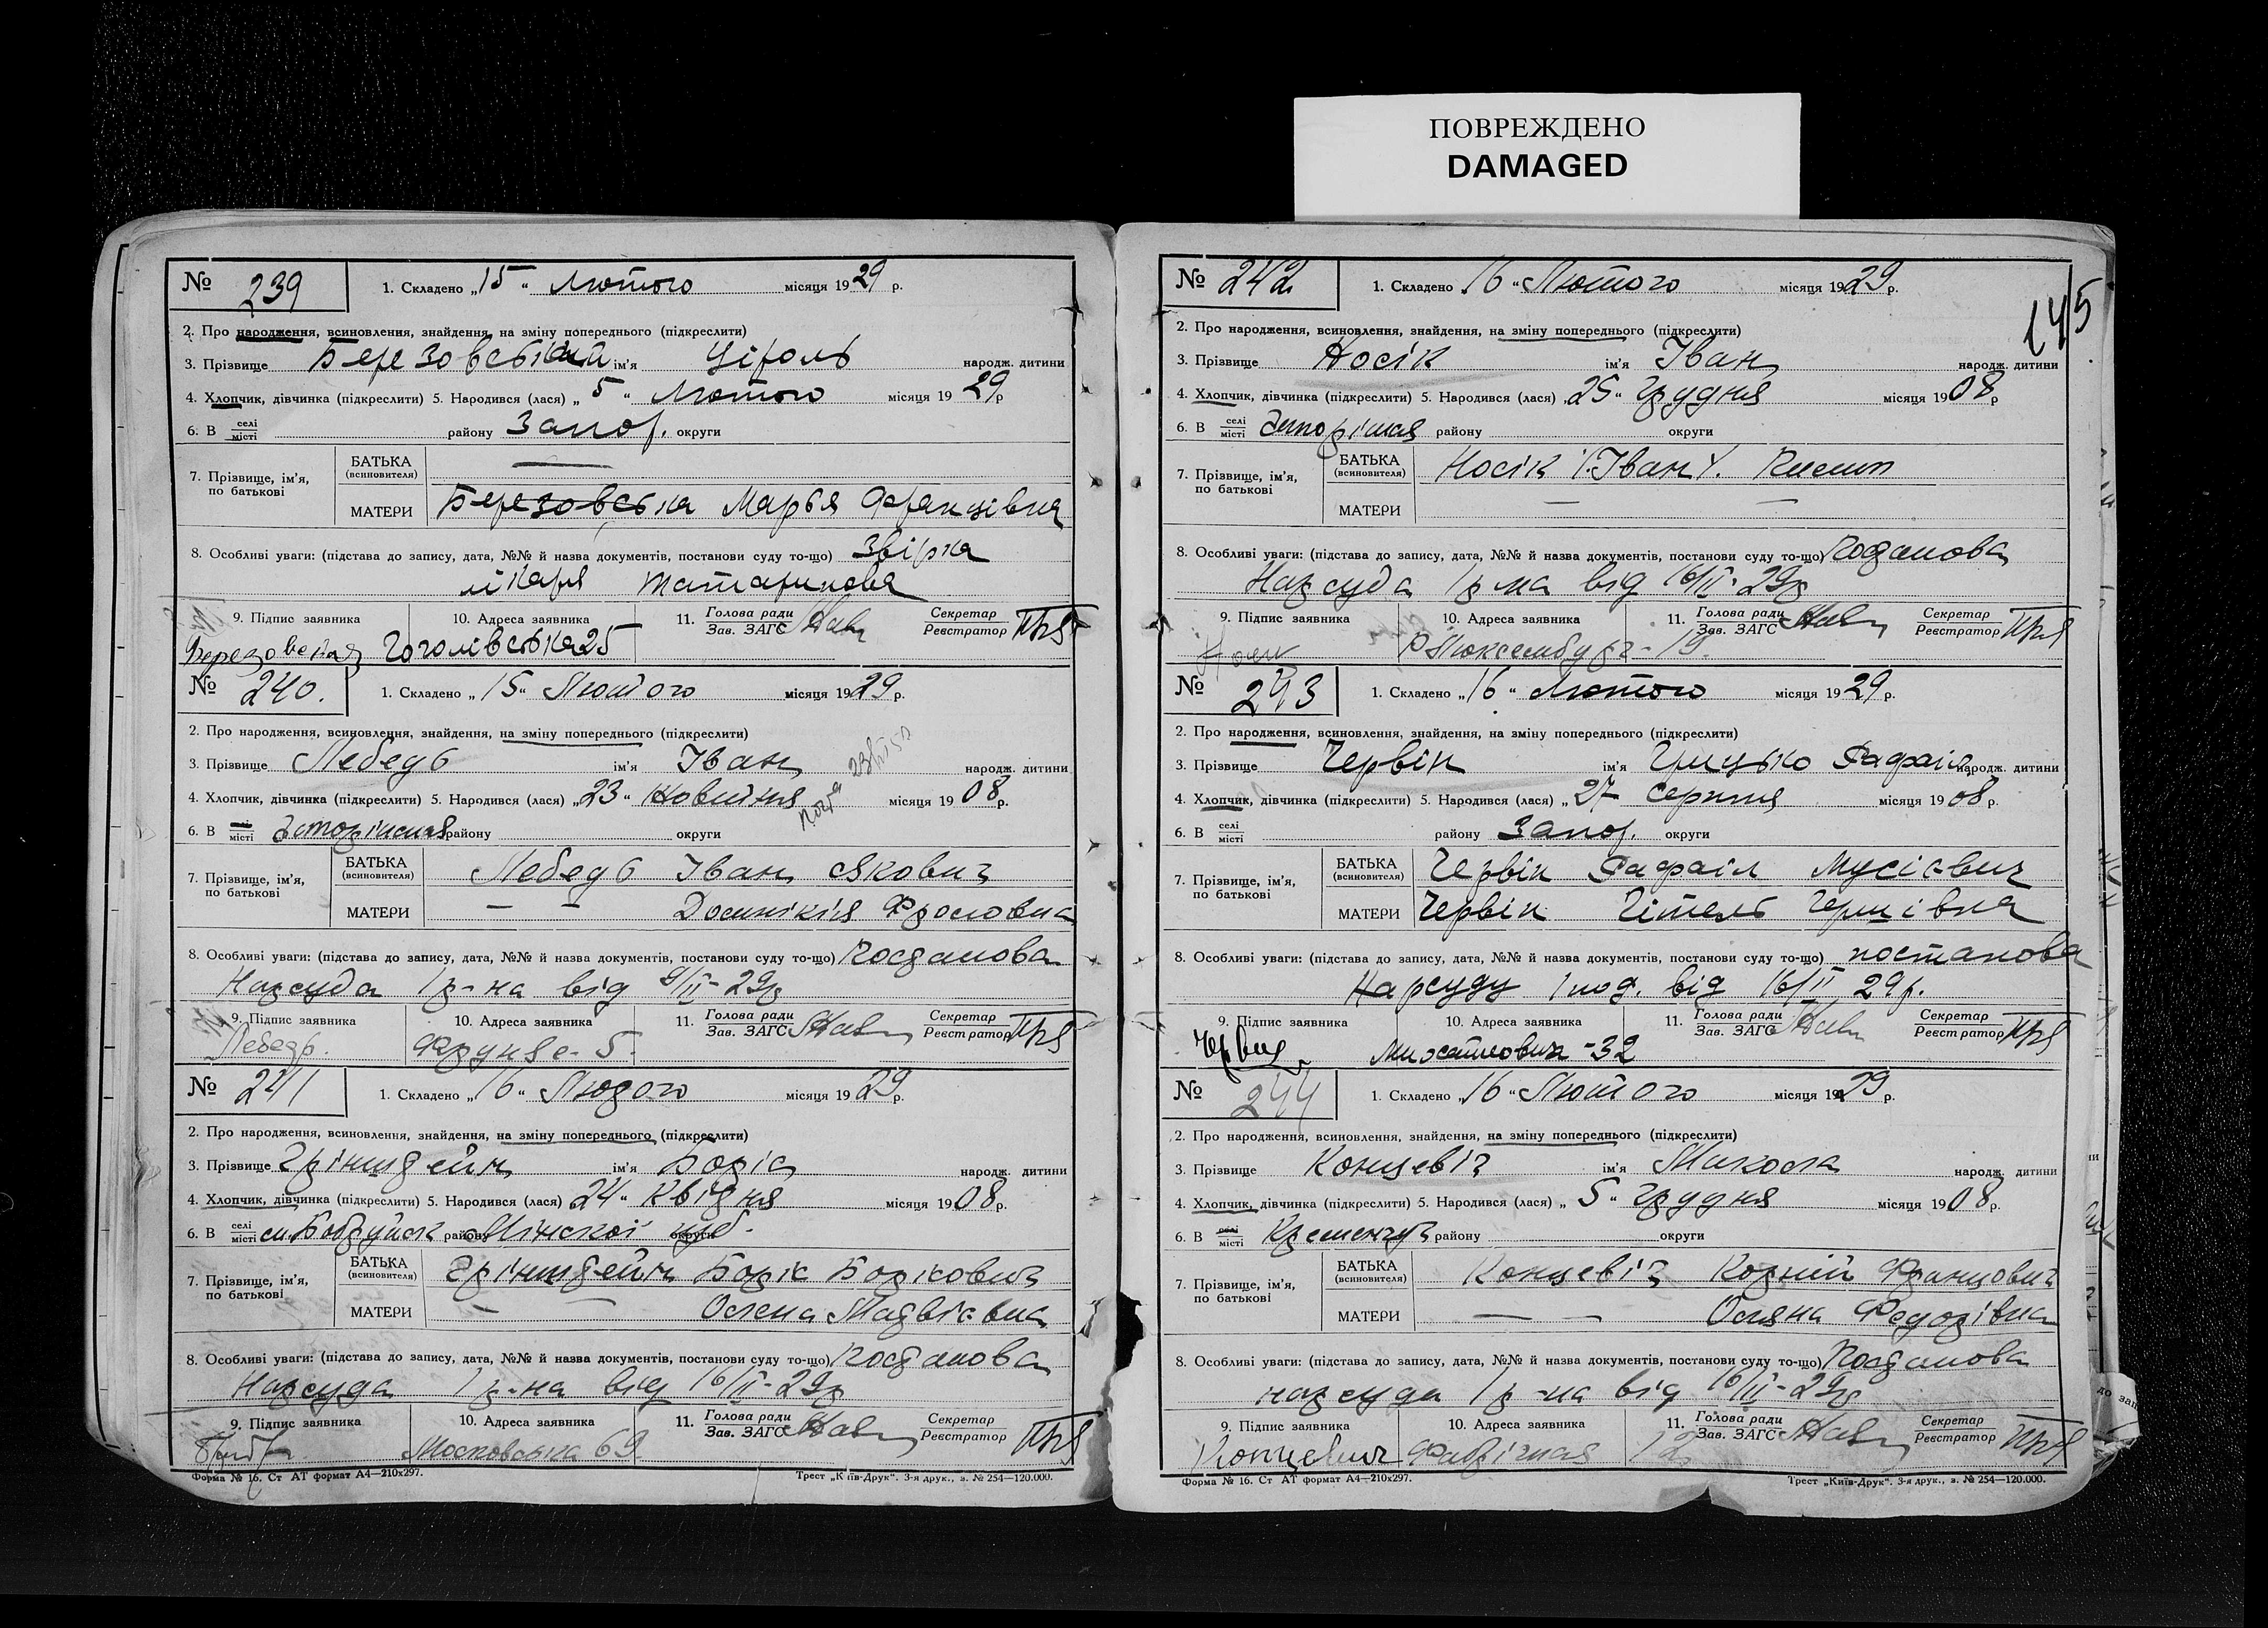 ПОВРЕЖДЕНО
DAMAGED
№ 239 1. Складено „15“ Лютого місяця 1929 р.
2. Про народження, всиновлення, знайдення, на зміну попереднього (підкреслити)
3. Прізвище ім'я народж. дитини
4. Хлопчик, дівчинка (підкреслити) 5. Народився (лася) „5“ Лютого місяця 1929 р
6. В селі місті району Запор. округи
7. Прізвище, ім'я, по батькові
БАТЬКА (всиновителя) —
МАТЕРИ Березовська Марья Францівна
8. Особливі уваги: (підстава до запису, дата, №№ й назва документів, постанови суду то-що)
лікаря Татаринова
9. Підпис заявника 10. Адреса заявника 11. Голова ради Зав. ЗАГС Секретар Реєстратор
Гоголівська 25
№ 240. 1. Складено „15“ Лютого місяця 1929 р.
2. Про народження, всиновлення, знайдення, на зміну попереднього (підкреслити)
3. Прізвище Лебедь ім'я Іван народж. дитини
4. Хлопчик, дівчинка (підкреслити) 5. Народився (лася) „23“ місяця 1908 р.
6. В селі місті району округи
7. Прізвище, ім'я, по батькові
БАТЬКА (всиновителя) Лебедь Іван Якович
МАТЕРИ — —
8. Особливі уваги: (підстава до запису, дата, №№ й назва документів, постанови суду то-що) Постанова
Нарсуда 1 р-на від 9/II-29р
9. Підпис заявника 10. Адреса заявника 11. Голова ради Зав. ЗАГС Секретар Реєстратор
Лебедь. Фрунзе - 5.
№ 241 1. Складено „16“ Лютого місяця 1929 р.
2. Про народження, всиновлення, знайдення, на зміну попереднього (підкреслити)
3. Прізвище Грінштейн ім'я Боріс народж. дитини
4. Хлопчик, дівчинка (підкреслити) 5. Народився (лася) 24“ Квітня місяця 1908 р.
6. В селі місті м. Бобруйськ району Мінської округи губ.
7. Прізвище, ім'я, по батькові
БАТЬКА (всиновителя) Грінштейн Борік Борікович
МАТЕРИ — — Олена Матвієвна
8. Особливі уваги: (підстава до запису, дата, №№ й назва документів, постанови суду то-що) Постанова
Нарсуда 1 р-на від 16/II-29р
9. Підпис заявника 10. Адреса заявника 11. Голова ради Зав. ЗАГС Секретар Реєстратор
Московська 69
Форма № 16. Ст АТ формат А4—210х297. Трест „Київ-Друк“. 3-я друк., з. № 254—120.000.
145
№ 242 1. Складено 16 “ Лютого місяця 1929 р.
2. Про народження, всиновлення, знайдення, на зміну попереднього (підкреслити)
3. Прізвище Носік ім'я Іван народж. дитини
4. Хлопчик, дівчинка (підкреслити) 5. Народився (лася) „25“ Грудня місяця 1908 р
6. В селі місті району округи
7. Прізвище, ім'я, по батькові
БАТЬКА (всиновителя) Носік Іван
МАТЕРИ — —
8. Особливі уваги: (підстава до запису, дата, №№ й назва документів, постанови суду то-що) Постанова
Нарсуда 1 р-на від 16/II-29р
9. Підпис заявника 10. Адреса заявника 11. Голова ради Зав. ЗАГС Секретар Реєстратор
Р Люксембург - 19.
№ 243 1. Складено „16“ Лютого місяця 1929 р.
2. Про народження, всиновлення, знайдення, на зміну попереднього (підкреслити)
3. Прізвище Червін ім'я Грицько Рафаіл народж. дитини
4. Хлопчик, дівчинка (підкреслити) 5. Народився (лася) „27 серпня місяця 1908 р.
6. В селі місті району Запор. округи
7. Прізвище, ім'я, по батькові
БАТЬКА (всиновителя) Червін Рафаіл Мусієвич
МАТЕРИ Червін Гітель Гершівна
8. Особливі уваги: (підстава до запису, дата, №№ й назва документів, постанови суду то-що) постанова
Нарсуду від 16/II 29р.
9. Підпис заявника 10. Адреса заявника 11. Голова ради Зав. ЗАГС Секретар Реєстратор
32
№ 244 1. Складено „16“ Лютого місяця 1929 р.
2. Про народження, всиновлення, знайдення, на зміну попереднього (підкреслити)
3. Прізвище Концевіч ім'я Микола народж. дитини
4. Хлопчик, дівчинка (підкреслити) 5. Народився (лася) „5“ Грудня місяця 1908 р.
6. В селі місті Кременчуг району округи
7. Прізвище, ім'я, по батькові
БАТЬКА (всиновителя) Концевіч Корній Францович
МАТЕРИ — — Оляна Федорівна
8. Особливі уваги: (підстава до запису, дата, №№ й назва документів, постанови суду то-що) Постанова
нарсуда 1 р-на від 16/II-29р
9. Підпис заявника 10. Адреса заявника 11. Голова ради Зав. ЗАГС Секретар Реєстратор
Концевич Фабрічная 12
Форма № 16. Ст АТ формат А4—210х297. Трест „Київ-Друк“. 3-я друк., з. № 254—120.000.